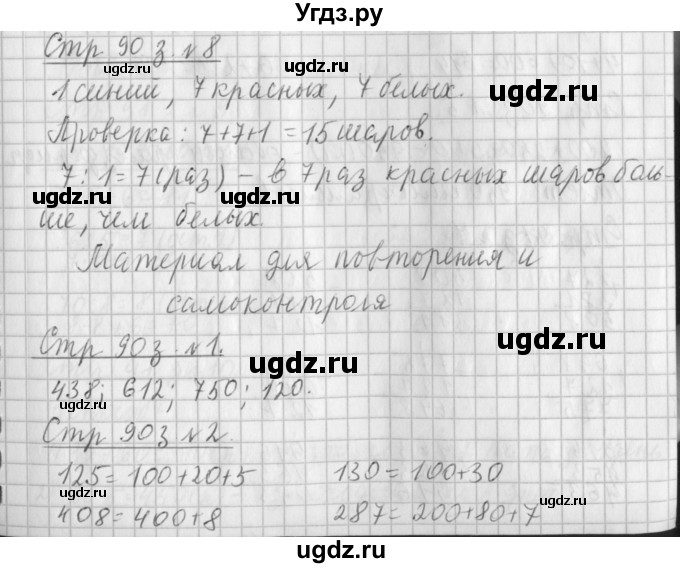 Угдз.ру
Стр 90 з. №8
1 синий, 7 красных, 7 белых.
Проверка: 7+7+1 = 15 шаров.
7:1=7(раз) - в 7 раз красных шаров боль-
ше, чем белых.
Материал для повторения и
самоконтроля
Стр 90 з. №1.
438; 612; 750; 120.
Стр 90 з №2.
125 = 100+20+5 130 = 100+30
408 = 400+8 287 = 200+80+7
ugdz.ru
ugdz.ru
ugdz.ru
ugdz.ru
ugdz.ru
ugdz.ru
ugdz.ru
ugdz.ru
ugdz.ru
ugdz.ru
ugdz.ru
ugdz.ru
ugdz.ru
ugdz.ru